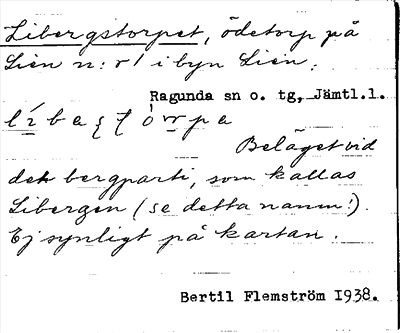 Libergstorpet, ödetorp på
Lien n:r 1 i byn Lien.
Ragunda sn o. tg, Jämtl.l.
Beläget vid
det bergparti, som kallas
Libergen (se detta namn!).
Ej synligt på kartan.
Bertil Flemström 1938.